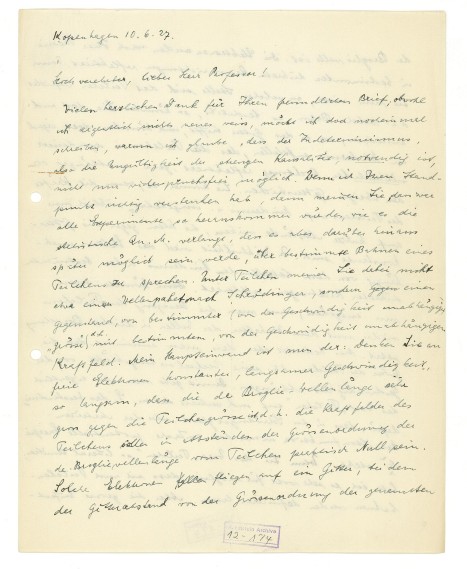 Kopenhagen 10.6.27.
Hochverehrter, lieber Herr Professor!
Vielen herzlichen Dank für Ihren freundlichen Brief, obwohl
ich eigentlich nichts neues weiss, möchte ich doch nocheinmal
schreiben, warum ich glaube, dass der Indeterminismus,
also die Ungültigkeit der strengen Kausalität, notwendig ist,
nicht nur widerspruchsfrei möglich. Wenn ich Ihren Stand-
punkt richtig verstanden hab, dann meinen Sie, dass zwar
alle Experimente so herauskommen würden, wie es die
statistische Qu. M. verlange, dass es aber darüber hinaus
später möglich sein werde, über bestimmte Bahnen eines
Teilchens zu sprechen. Unter Teilchen meinen Sie dabei nicht
etwa einen Wellenpaket nach Schrödinger, sondern Gegen einen
gegenstand, von bestimmter (von der Geschwindigkeit unabhängiger
grösse) mit bestimmtem, von der Geschwindigkeit unabhängigen
Kraftfeld. Mein Haupteinwand ist nun der: Denken Sie an
freie Elektronen konstanter, langsamer Geschwindigkeit,
so langsam, dass die de Broglie-Wellenlänge sehr
gross gegen die Teilchengrösse ist, d. h. die Kraftfelder des
Teilchens sollen in Abständen der Grössenordnung der
de Brogliewellenlänge vom Teilchen praktisch Null sein.
Solche Elektronen fliegen auf ein Gitter, bei dem
der Gitterabstand von der Grössenordnung der genannten
12-174